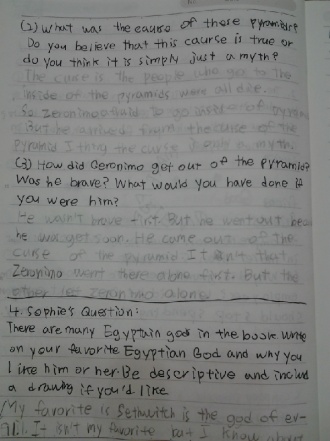 (2) What was the caurse of these pyramids?
Do you believe that this caurse is true or
do you think it is simply just a myth?
The curse is the people who go to the
inside of the pyramids were all die.
So Zeronimo afraid to go inside of
But he arrived them the curse of the
Pyramid I thing the curse is only a myth
(3) How did Geronimo get out of the pyramid?
Was he brave? What would you have done if
you were him?
He wasn't brave first. But he went out
he was get scar. He come out of the
curse of the pyramid It isn't that
Zeronimo went there alone first. But the
other let Zeronimo alone.
4. Sophie's Question:
There are many Egyptain gods in the book write
on your favorite Egyptian God and why you
like him or her. Be descriptive and includ
a drawing if you'd like
My favorite is Seth which is the god of ev-
It isn't my favorite but I know